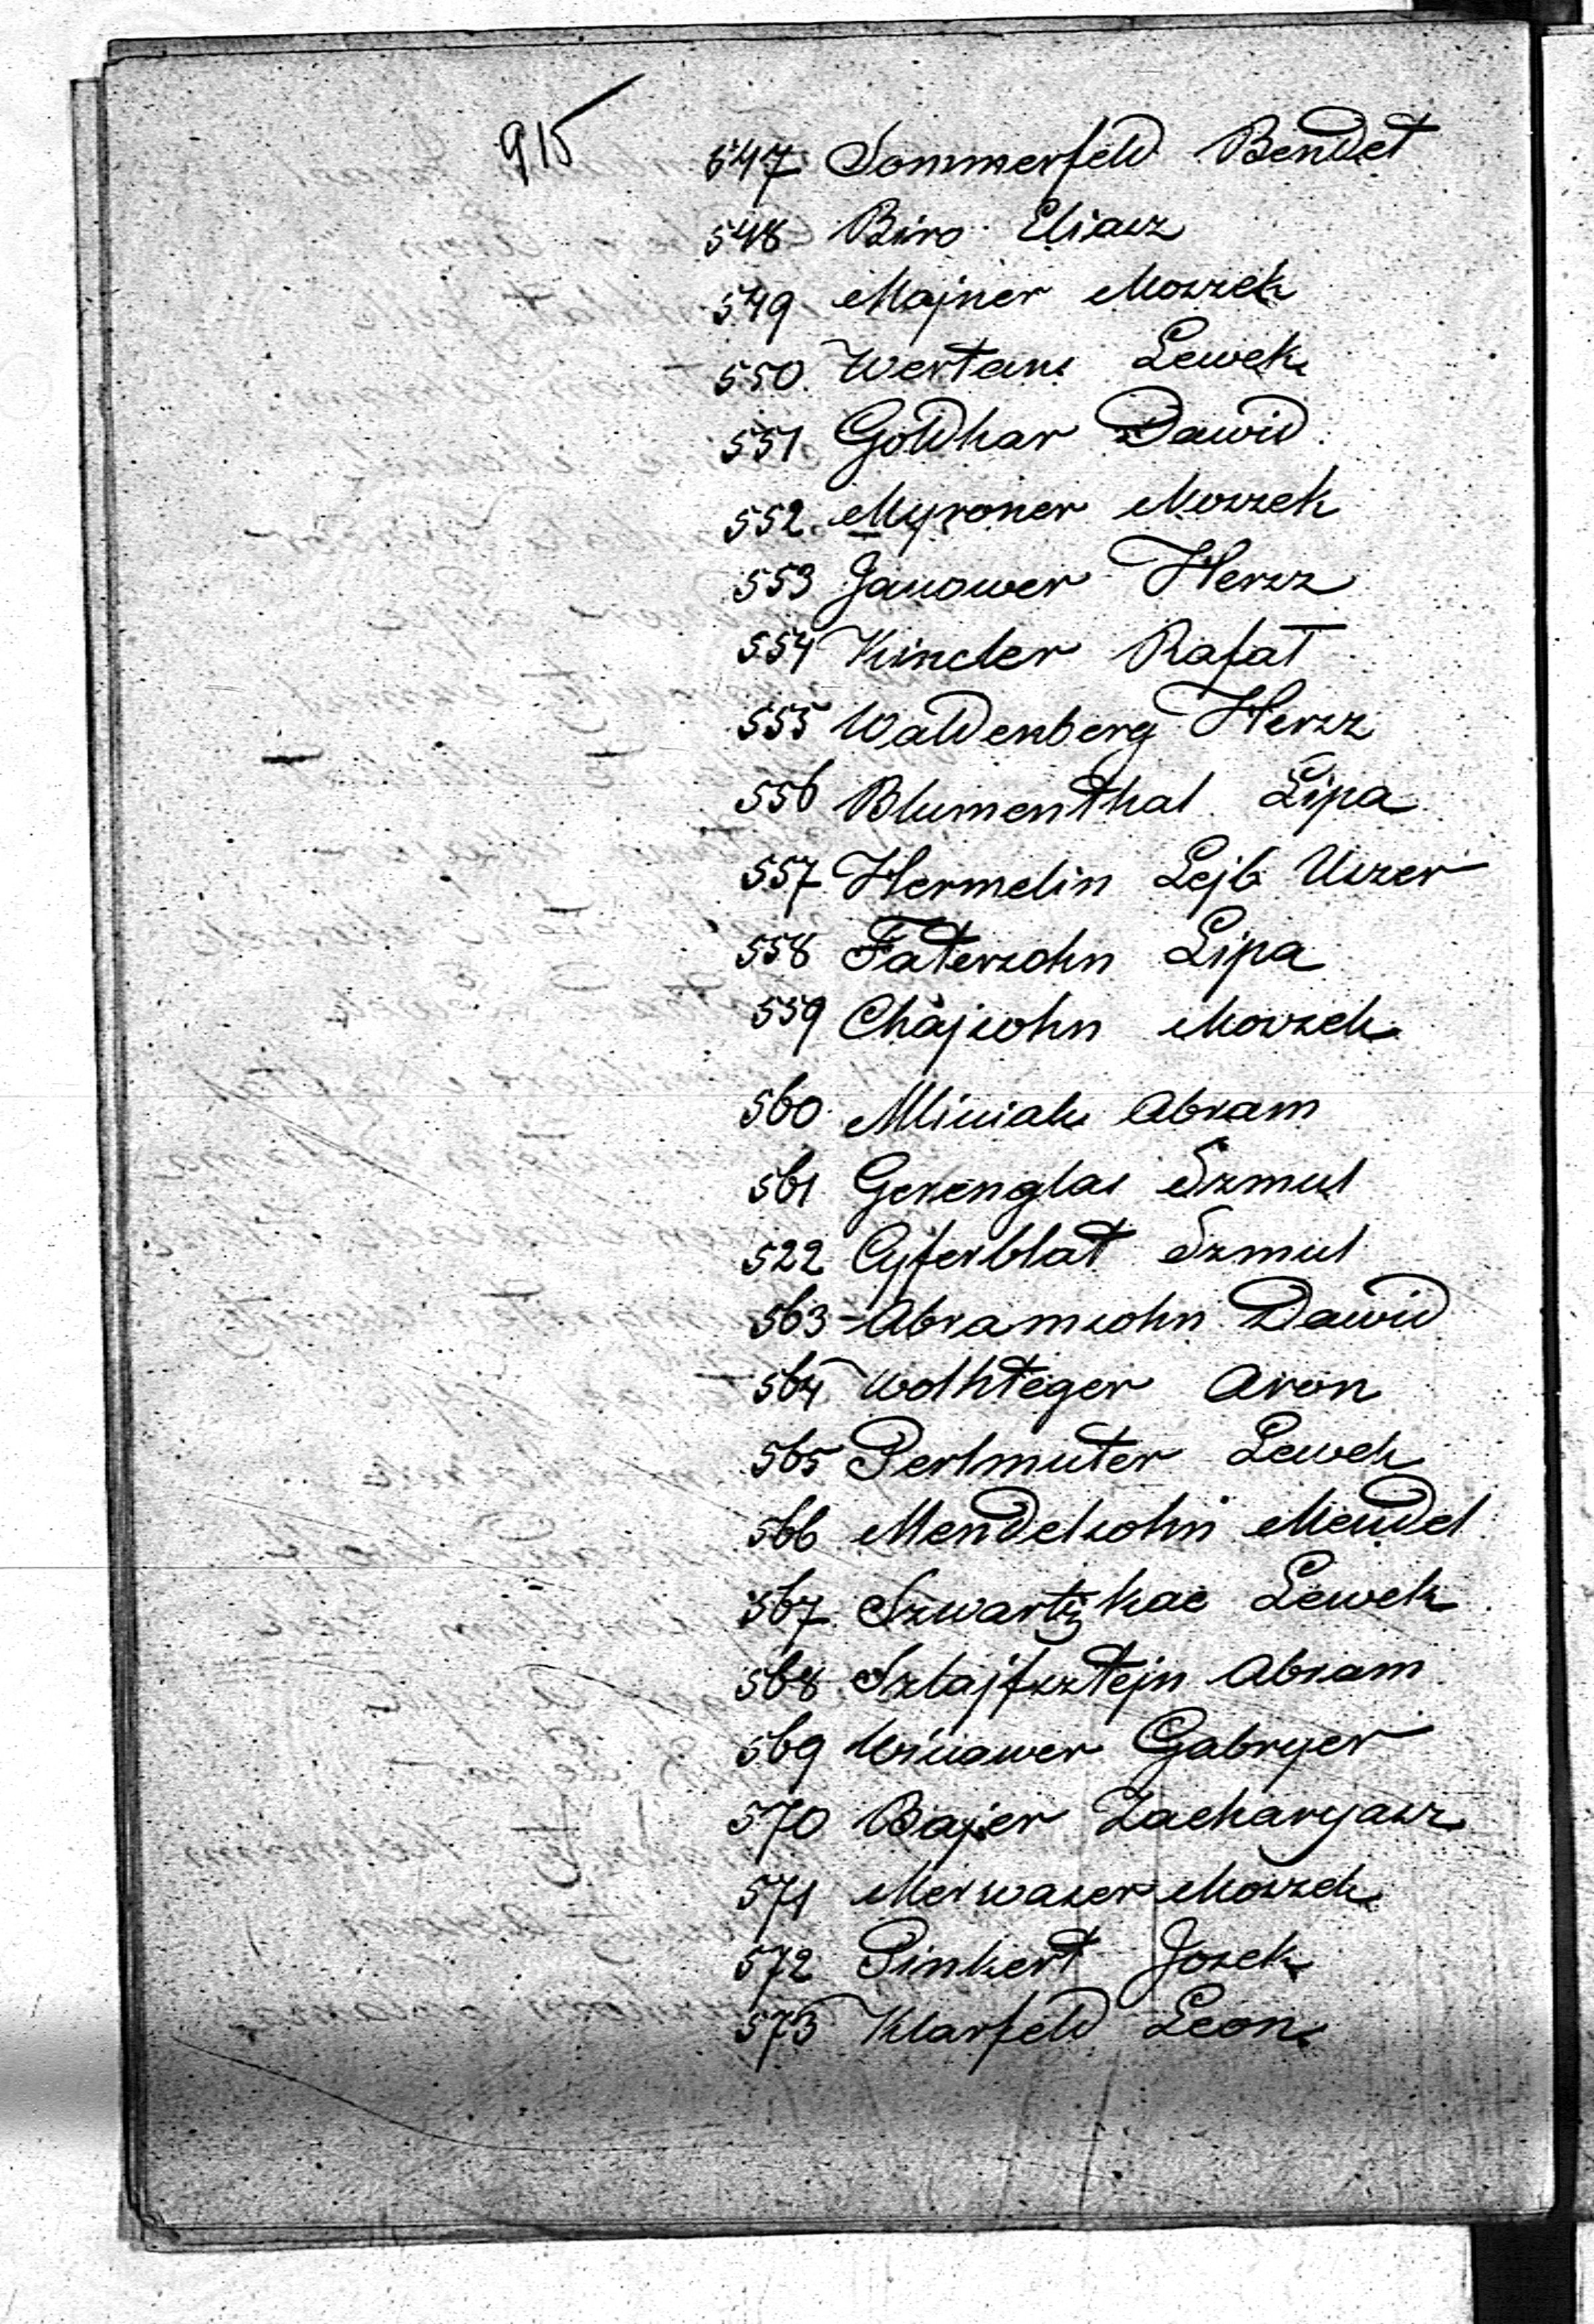 915
547 Sommerfeld Bendet
548 Biro Eliasz
549 Majner Moszek
550. Wertans Lewek
551 Goldhar Dawid
552. Myroner Moszek
553 Janower Hersz
554 Kinder Rafał
555 Waldenberg Hersz
556 Blumenthal Lipa
557 Hermelin Lejb Uszer
558 Fatersohn Lipa
559 Chajsohn Moszek
560 Mliniak Abram
561 Gerenglas Szmul
522 Cyferblat Szmul
563 Abramsohn Dawid
564 Aron
565 Perlmuter Lewek
566 Mendelsohn Mendel
567 Szwartzkac Lewek
568 Szlajfsztejn Abram
569 Winawer Gabryer
570 Bajer Zacharyasz
571 Merwaser Moszek
572 Pinkert Josek
573 Klarfeld Leon